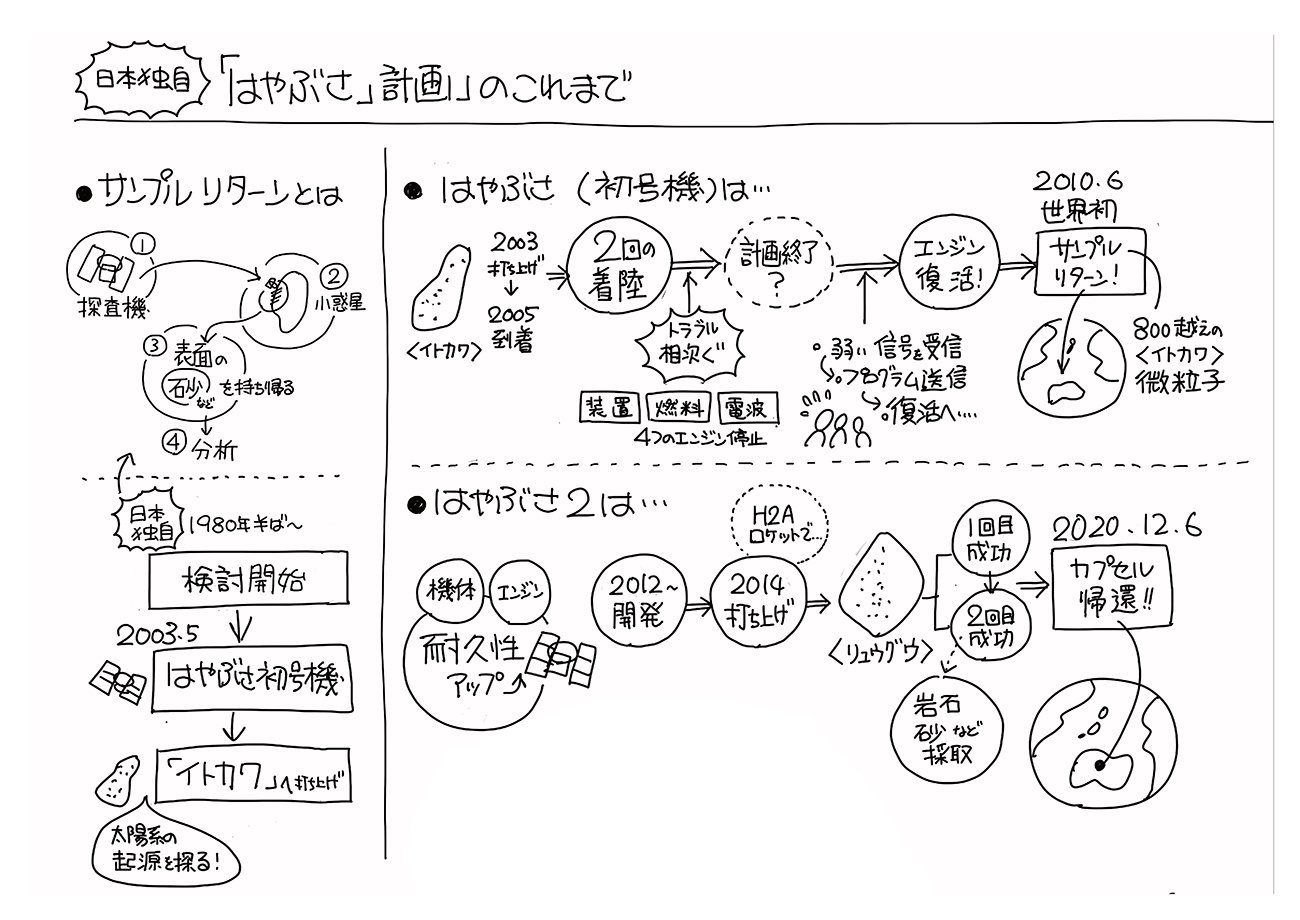 日本独自 「はやぶさ」計画」のこれまで
●サンプルリターンとは
①
探査機
②
小惑星
③ 表面の
石砂など を持ち帰る
④ 分析
日本独自
1980年半ば〜
検討開始
2003.5
はやぶさ初号機
「イトカワ」へ打ち上げ
太陽系の
起源を探る!
● はやぶさ (初号機)は…
〈イトカワ〉
2003
打ち上げ
↓
2005
到着
2回の
着陸
トラブル
相次ぐ
装置 燃料 電波
4つのエンジン停止
計画終了
?
。弱い信号を受信
。プログラム送信
。復活へ….
エンジン
復活!
2010.6
世界初
サンプル
リターン!
800越えの
〈イトカワ〉
微粒子
●はやぶさ2は…
機体 エンジン
耐久性
アップ
2012〜
開発
H2A
ロケットで…
2014
打ち上げ
〈リュウグウ〉
1回目
成功
2回目
成功
岩石
砂など
採取
2020.12.6
カプセル
帰還!!